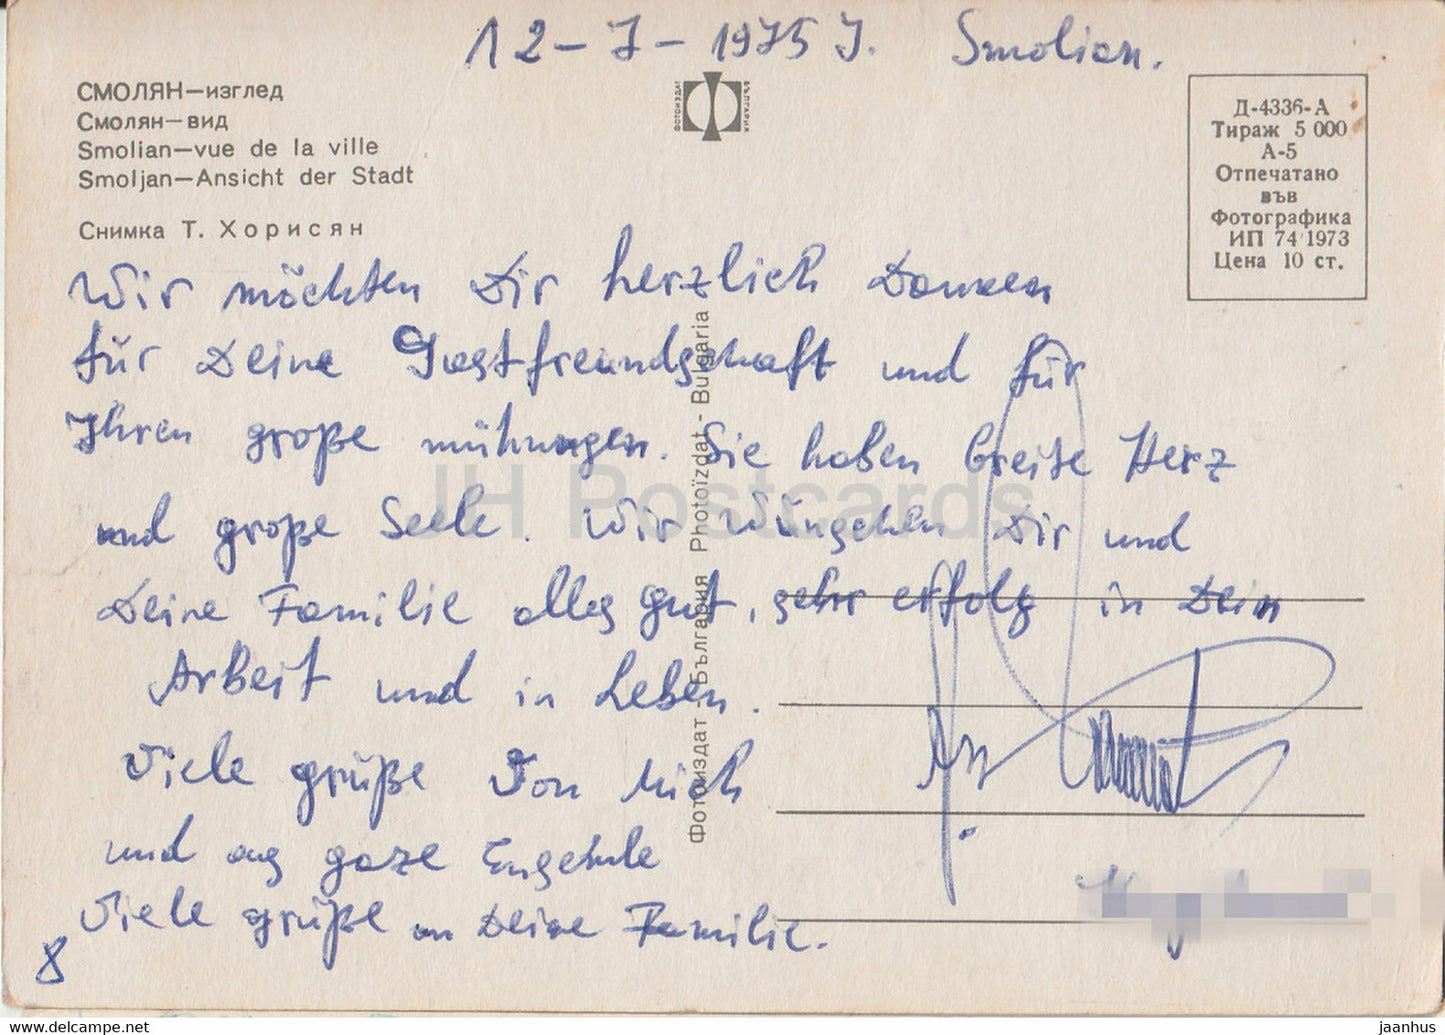 12-7-1975 J. Smolian.
СМОЛЯН—изглед
Смолян—вид
Smolian—vue de la ville
Smoljan—Ansicht der Stadt
Снимка Т. Хорисян
ФОТОИЗДАТ
БЪЛГАРИЯ
Д-4336-А
Тираж 5 000
А-5
Отпечатано
във
Фотографика
ИП 74 1973
Цена 10 ст.
Wir möchten Dir herzlich Danken
für Deine Gastfreundschaft und für
Ihren große mühungen. Sie haben breite Herz
und große Seele. Wir Wüngchen Dir und
Deine Familie alles gut, sehr erfolg in Dein
Arbeit und in Leben.
Viele grüße Von Mich
und aus
Viele grüße an Deine Familie.
8
Фотоиздат - България Photoïzdat - Bulgaria
JH Postcards
www.delcampe.net
jaanhus